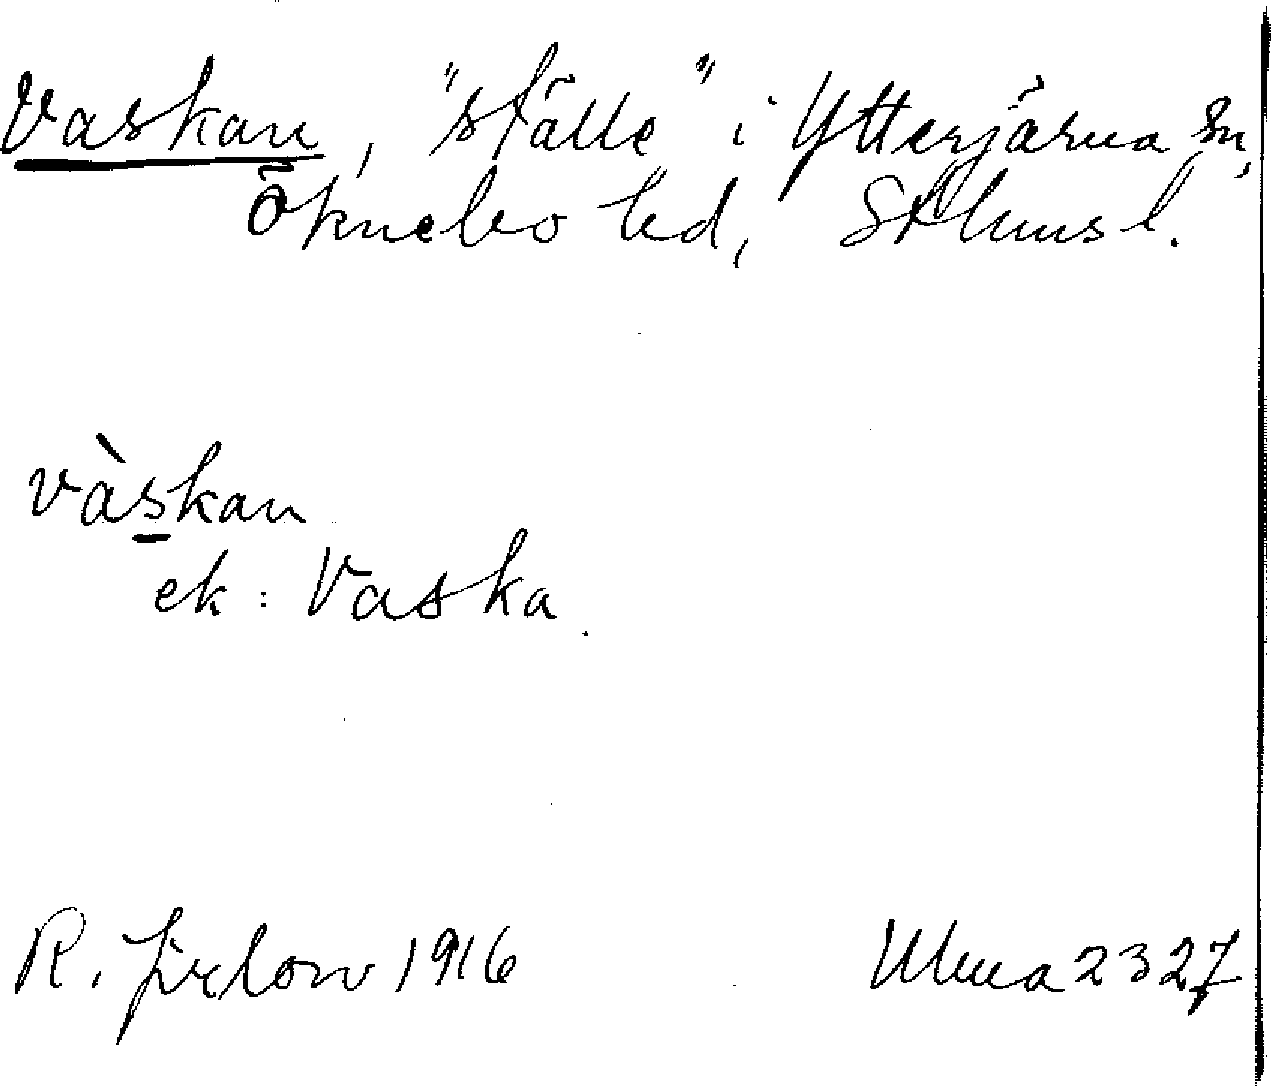 Vaskan, "ställe" i Ytterjärna sn,
Öknebo hd, Sthms l.
vàskan
ek: Vaska.
R. Jirlow 1916 Ulma 2327